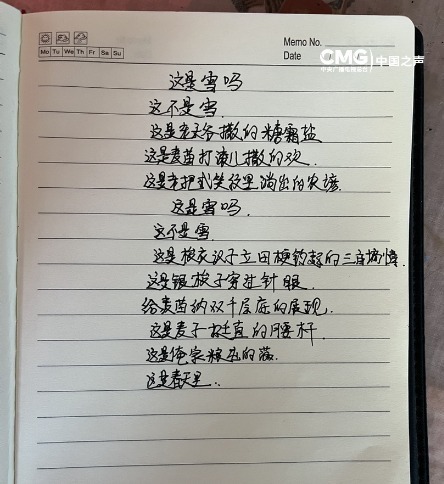 Mo Tu We Th Fr Sa Su
Memo No.
Date /
CMG 中国之声
中央广播电视总台
这是雪吗
这不是雪.
这是老天爷撒的糖霜盐
这是麦苗打滚儿撒的欢.
这是老把式笑纹里淌出的农谚.
这是雪吗.
这不是雪.
这是 立田埂 的三
这是银梭子穿过针眼.
给麦苗纳双千层底的
这是麦子 挺直的腰杆.
这是俺家 的
这是春天里..